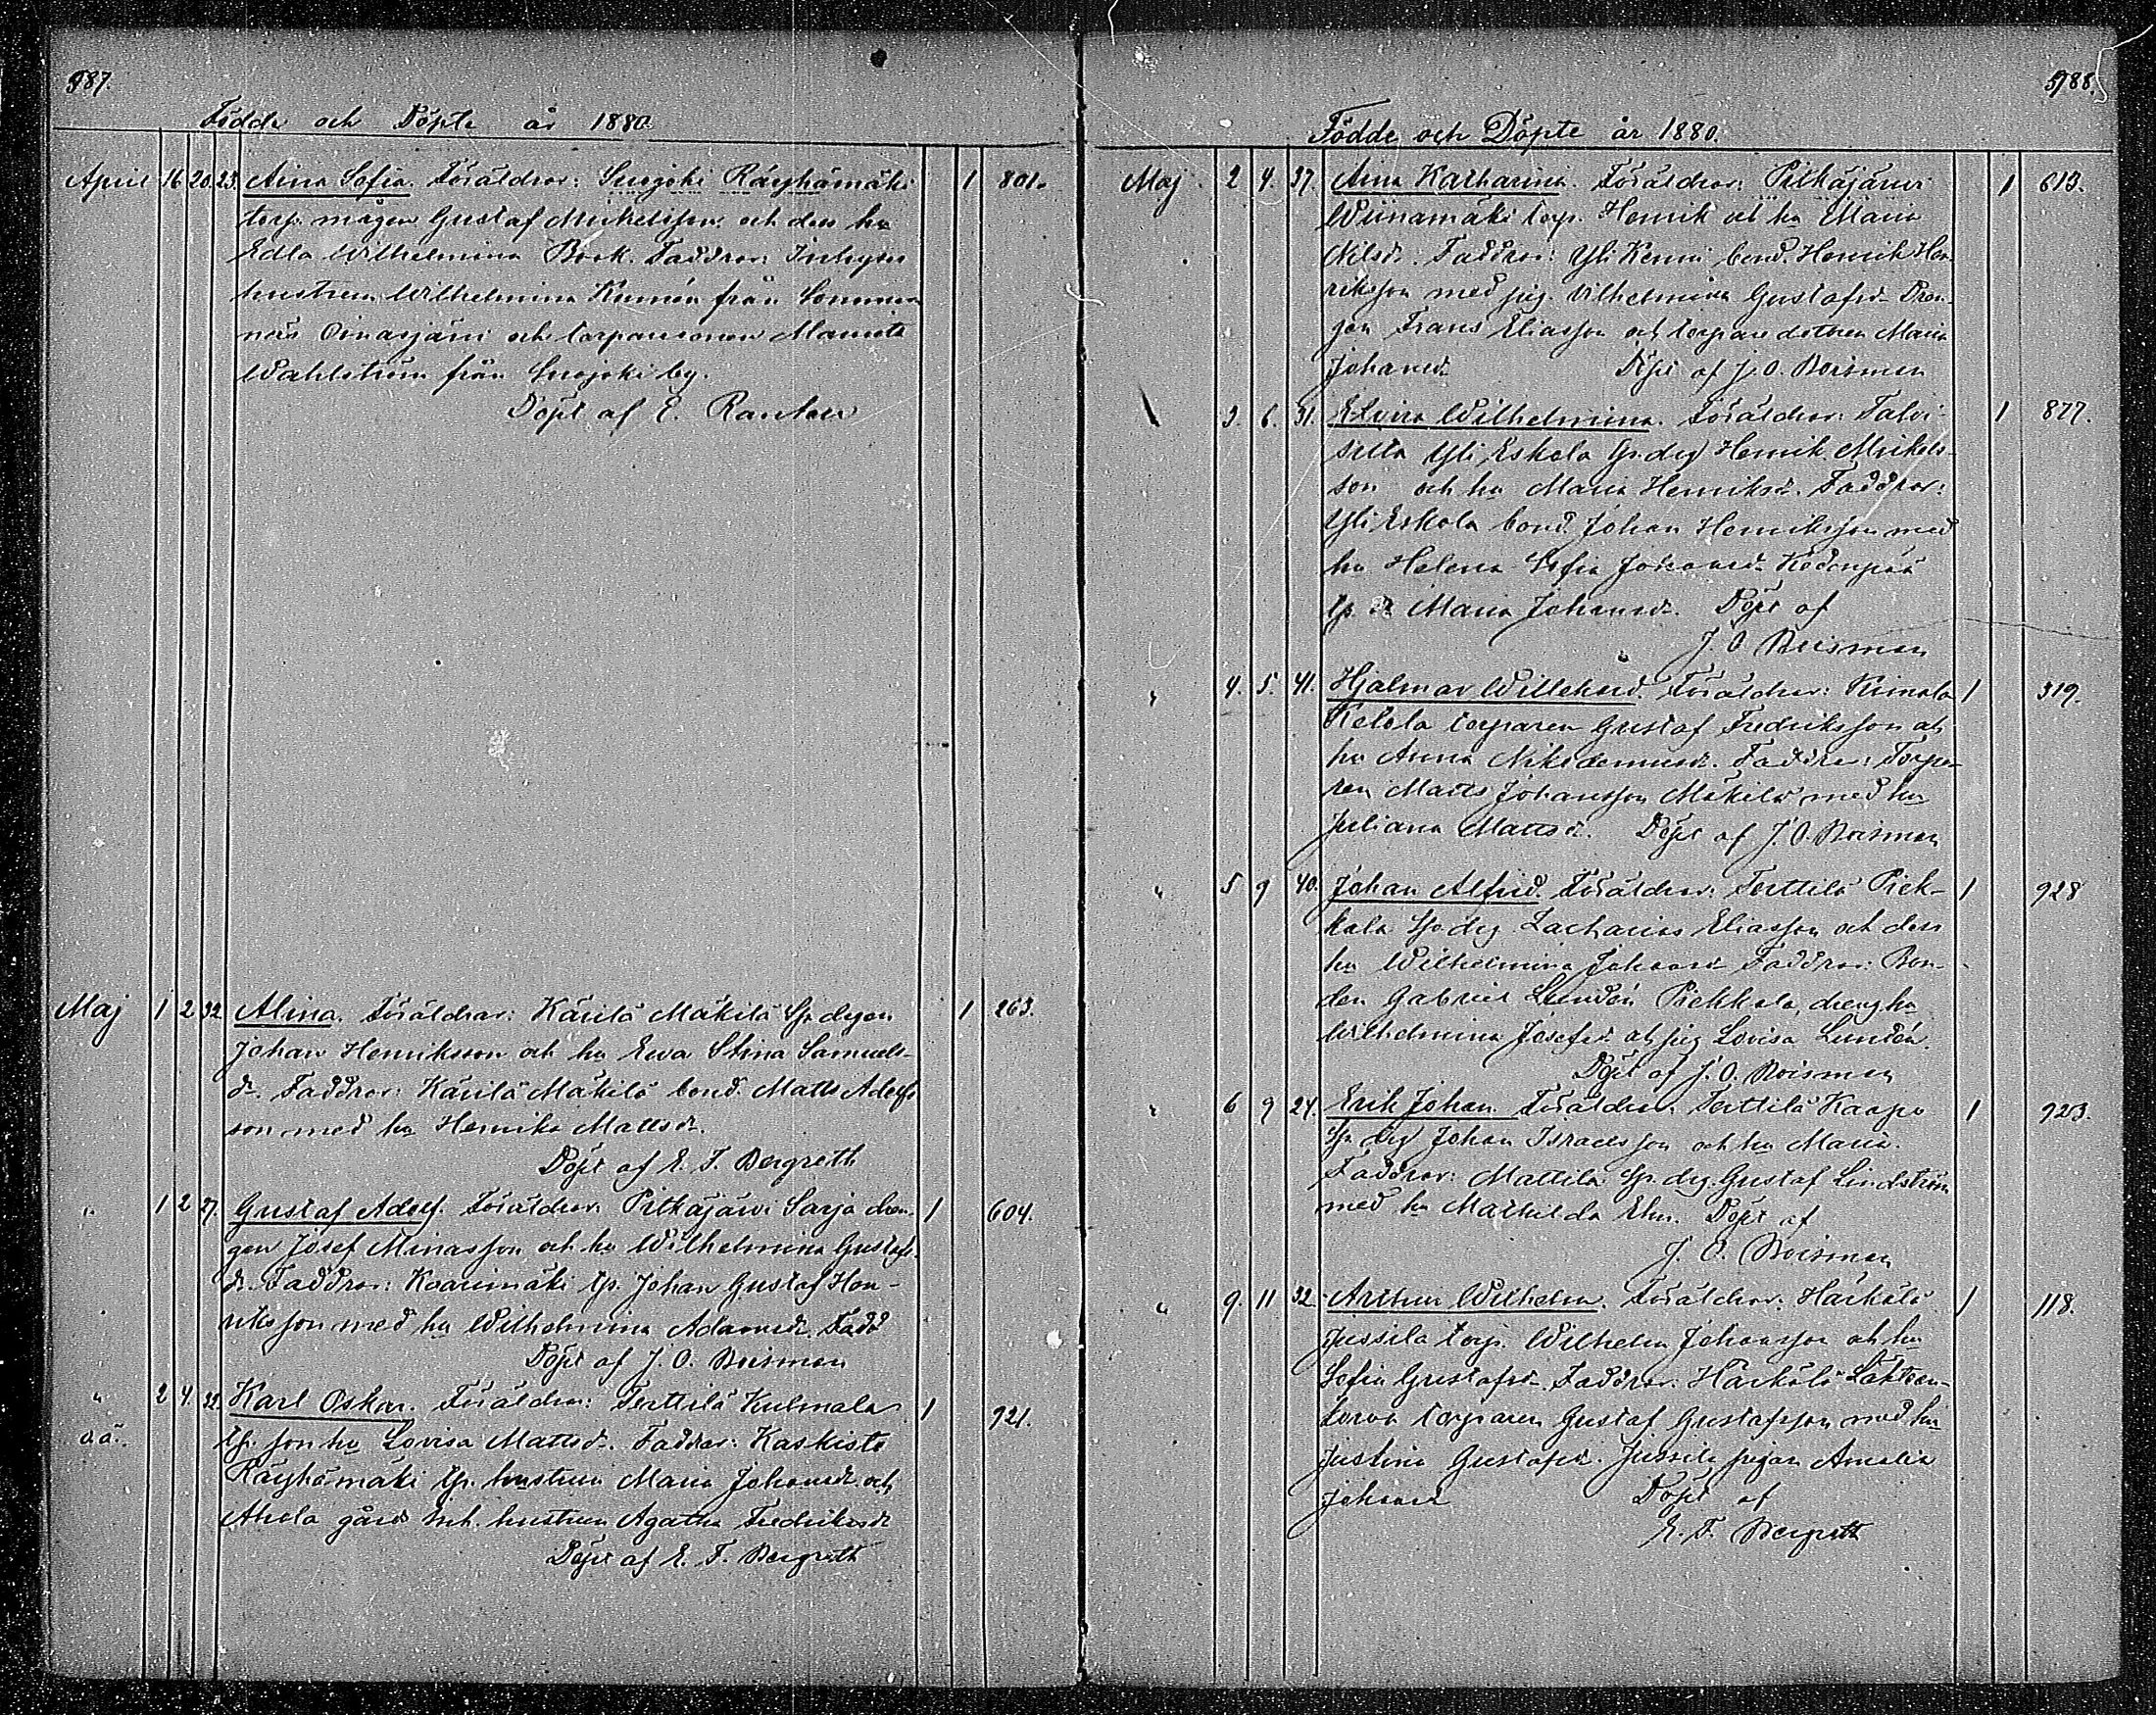 987.
Födde och Döpte år 1880.
April 16 20. 23. Aina Sofia. Föräldrar: Suojoki Räyhämäki 1 801.
torp. mågen Gustaf Mickelsson och dess hu
Edla Wilhelmina Böök. Faddrar: Inhyses
hustrun Wilhelmina Kumén från Sommar
näs Oinasjärvi och torparsonen
Wahlström från Suojoki by.
Döpt af E.
Maj 1 2 32. Alina. Föräldrar: Kärilä Mäkilä Sp. dryen 1 263.
Johan Henriksson och hu Ewa Stina Samuels-
dr. Faddrar: Kärilä Mäkilä bond. Matts Adolfs
son med hu Henrika Mattsdr.
Döpt af E. F. Bergroth
" 1 2 27. Gustaf Adolf. Föräldrar: Pitkäjärvi Sarja drän- 1 604.
gen Josef Minasson och hu Wilhelmina Gustafs-
dr. Faddrar: Koarimäki tp. Johan Gustaf Hen-
riksson med hu Wilhelmina Adamsdr. Fadd
Döpt af J. O. Roisman
" 2 4. 22. Karl Oskar. Föräldrar: Terttilä Kulmala 1 921.
o.ä. tp. son hu Lovisa Mattsdr. Faddrar: Kaskisto
Räyhämäki tp. hustrun Maria Johansdr. och
Ahola gård Inh. hustrun Agatha Fredriksdr
Döpt af E. F. Bergroth
988.
Födde och Döpte år 1880.
Maj 2 4. 37. Aina Katharina. Föräldrar: Pitkäjärvi 1 613.
Wiinamäki torp. Henrik och hu Maria
Nilsdr. Faddrar: Yli Kenni bond. Henrik Hen-
riksson med pig. Vilhelmina Gustafsdr. Drän-
gen Frans Eliasson och torpare dottren Maria
Johansdr. Döpt af J. O. Roisman
3. 6. 31. Elvira Wilhelmina. Föräldrar: Talvi 1 877.
silta Yli Eskola Sp. drg Henrik Mickels-
son och hu Maria Henriksdr. Faddrar:
Yli Eskola bond. Johan Henriksson med
hu Helena Sofia Johansdr. Kedonpää
tp. dr. Maria Johansdr. Döpt af
J. O. Roisman
" 4. 5. 41. Hjalmar Willehard. Föräldrar: Kimala 1 319.
Ketola torparen Gustaf Fredriksson och
hu Anna Nikodemusdr. Faddrar: Torpa-
ren Matts Johansson Mäkilä med hu
Juliana Mattsdr. Döpt af J. O. Roisman
" 5 9 40. Johan Alfrid. Föräldrar: Terttilä Piek- 1 928
kala Sp. drg Zacharias Eliasson och dess
hu Wilhelmina Johansdr. Faddrar: Bon-
den Gabriel Lundén Piekkala, dreng hu
Wilhelmina Josefsdr. och pig Lovisa Lundén.
Döpt af J. O. Roisman
" 6 9 24. Erik Johan. Föräldrar: Terttilä Kaapo 1 923.
Sp. drg Johan Israelsson och hu Maria.
Faddrar: Mattila Sp. drg. Gustaf Lindström
med hu Mathilda Ehn. Döpt af
J. O. Roisman
" 9. 11 32. Arthur Wilhelm. Föräldrar: Härkälä 1 118.
Jussila torp. Wilhelm Johansson och hu
Sofia Gustafsdr. Faddrar: Härkälä Lähteen-
korva torparen Gustaf Gustafsson med hu
Justina Gustafsdr. Jussila pigan Amalia
Johansdr Döpt af
E. F. Bergroth